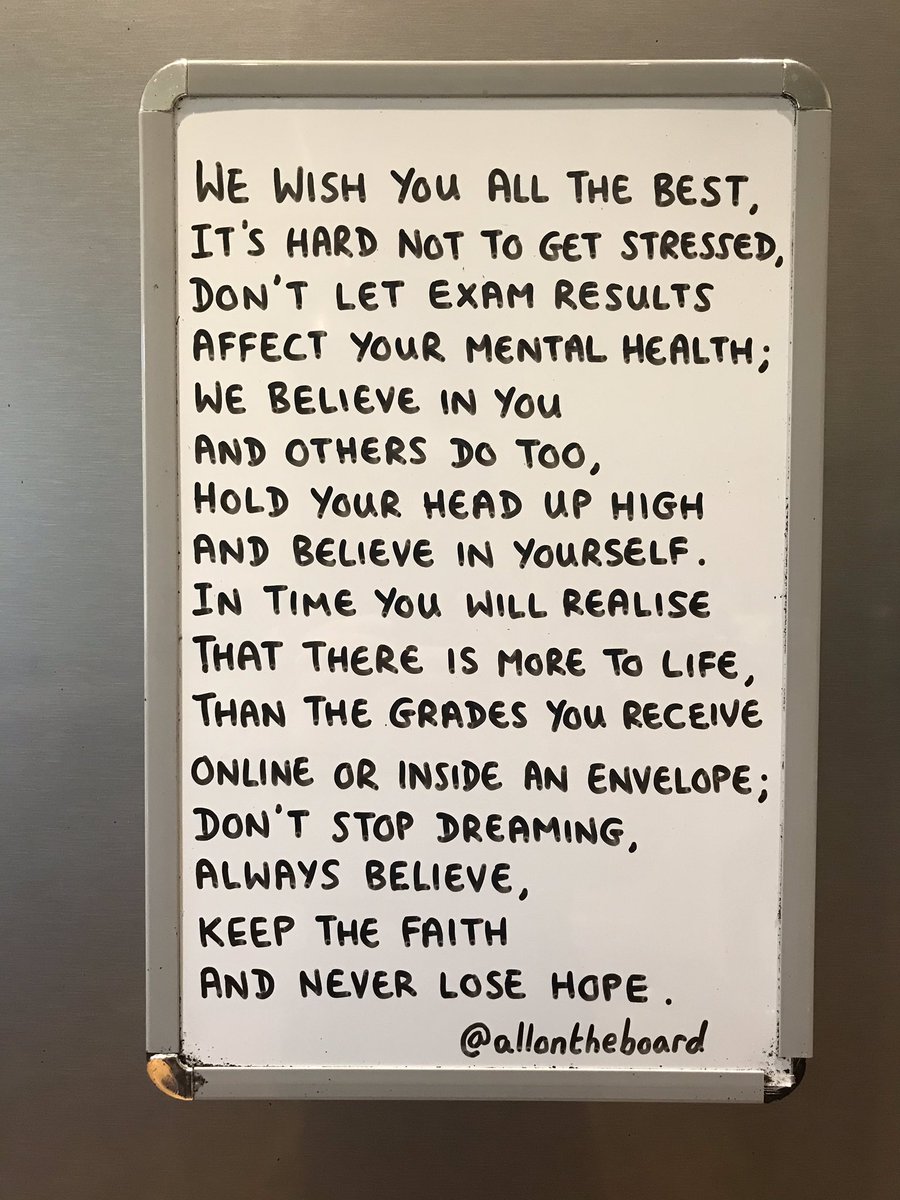 WE WISH YOU ALL THE BEST,
IT'S HARD NOT TO GET STRESSED,
DON'T LET EXAM RESULTS
AFFECT YOUR MENTAL HEALTH;
WE BELIEVE IN YOU
AND OTHERS DO TOO,
HOLD YOUR HEAD UP HIGH
AND BELIEVE IN YOURSELF.
IN TIME YOU WILL REALISE
THAT THERE IS MORE TO LIFE,
THAN THE GRADES YOU RECEIVE
ONLINE OR INSIDE AN ENVELOPE;
DON'T STOP DREAMING,
ALWAYS BELIEVE,
KEEP THE FAITH
AND NEVER LOSE HOPE.
@allontheboard